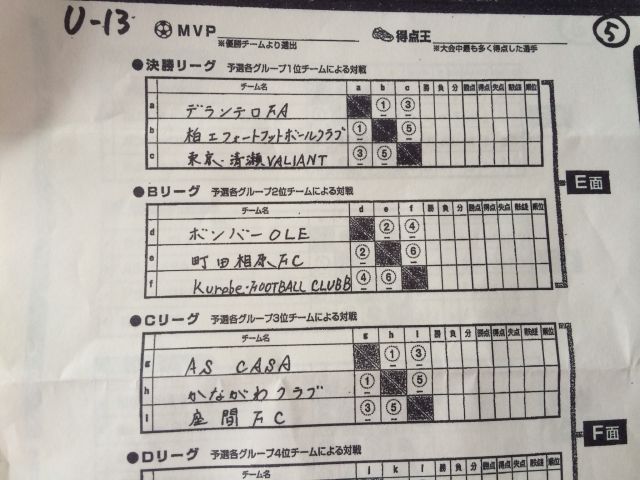 U-13 MVP 得点王 ⑤
※優勝チームより選出 ※大会中最も多く得点した選手
●決勝リーグ 予選各グループ1位チームによる対戦
チーム名 a b c 勝 負 分 勝点 得点 失点 得失 順位
a デランテロFA ① ③
b 柏エフォートフットボールクラブ ① ⑤
c 東京・清瀬VALIANT ③ ⑤
E面
●Bリーグ 予選各グループ2位チームによる対戦
チーム名 d e f 勝 負 分 勝点 得点 失点 順位
d ボンバーOLE ② ④
e 町田相原FC ② ⑥
f Kurobe・FOOTBALL CLUBB ④ ⑥
●Cリーグ 予選各グループ3位チームによる対戦
チーム名 g h i 勝 負 分 勝点 得点 失点 順位
g AS CASA ① ③
h かながわクラブ ① ⑤
i 座間FC ③ ⑤
F面
●Dリーグ 予選各グループ4位チームによる対戦
チーム名 j k l 勝 負 分 勝点 得点 失点 順位